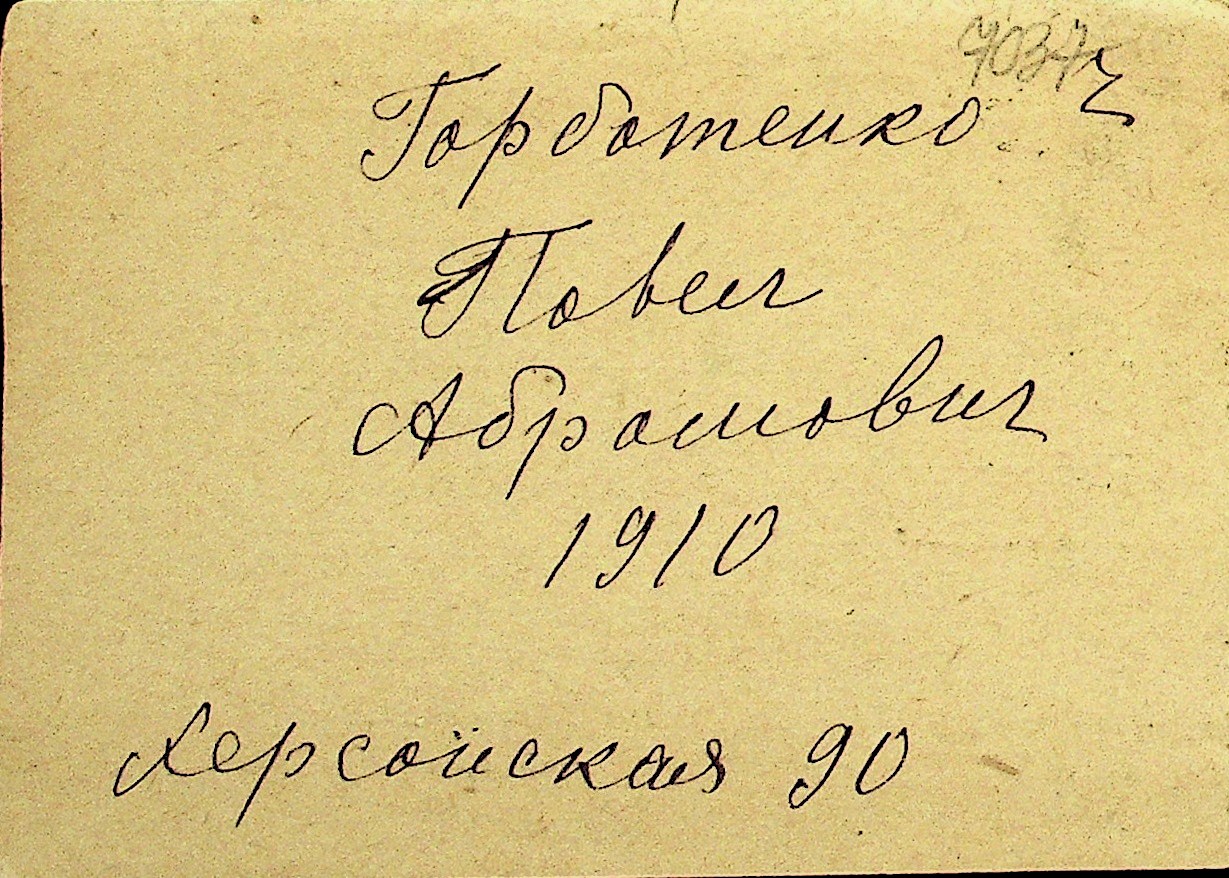 7037
Горботенко ч
Повел
Абромович
1910
Херсонская 90